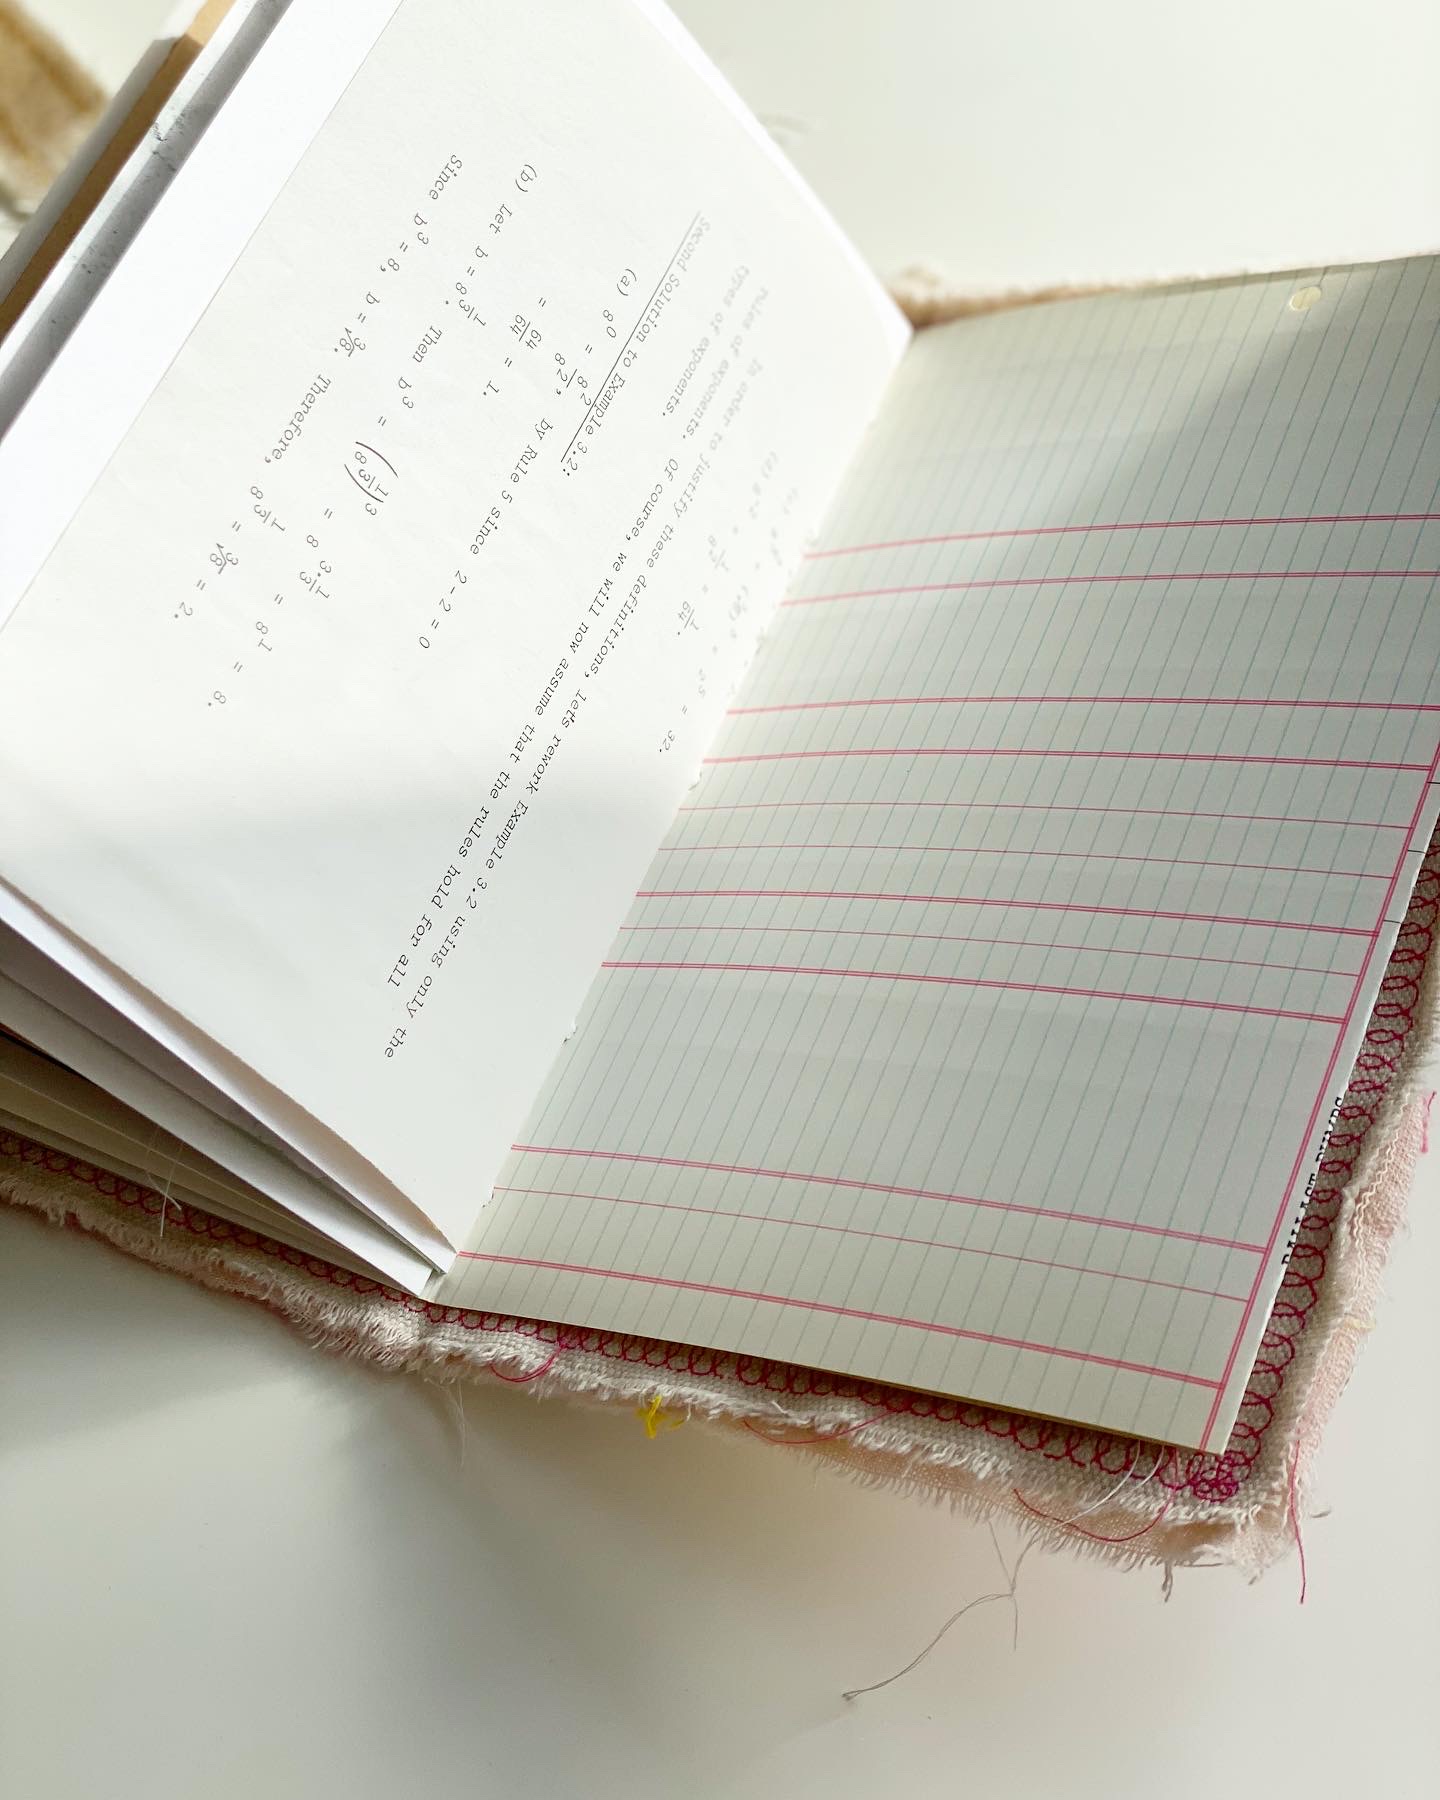 = 2⁵ = 32.
8⁻² = 1/8² = 1/64.
In order to justify these definitions, let's rework Example 3.2 using only the
rules of exponents. Of course, we will now assume that the rules hold for all
types of exponents.
Second Solution to Example 3.2:
(a) 8⁰ = 8²/8², by Rule 5 since 2-2=0
= 64/64 = 1.
(b) Let b = 8^(1/3). Then b³ = (8^(1/3))³ = 8^(3·1/3) = 8¹ = 8.
Since b³ = 8, b = ∛8. Therefore, 8^(1/3) = ∛8 = 2.
BALLAST PUMPS